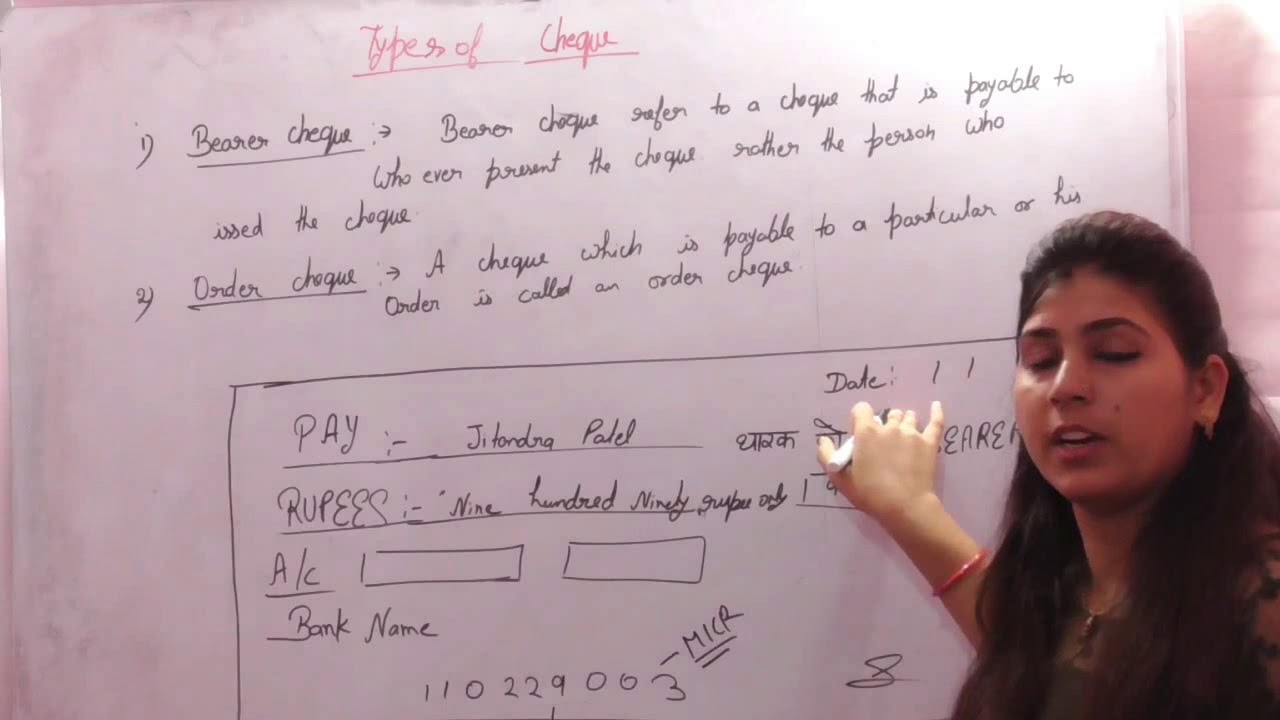 Types of Cheque
1) Bearer cheque :→ Bearer cheque refer to a cheque that is payable to
who ever present the cheque rather the person who
issed the cheque.
2) Order cheque :→ A cheque which is payable to a particular or his
Order is called an order cheque.
Date: / /
PAY :- Jitendra Patel धारक को EARER
RUPEES :- Nine hundred Ninety rupee only 9
A/c
Bank Name
110229003 - MICR